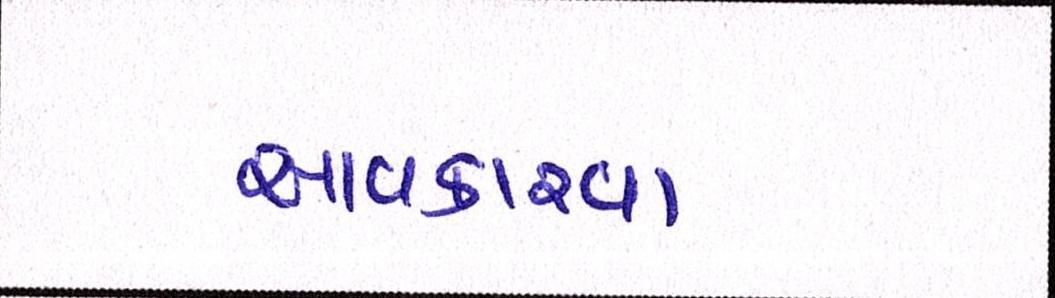 આવકારવા